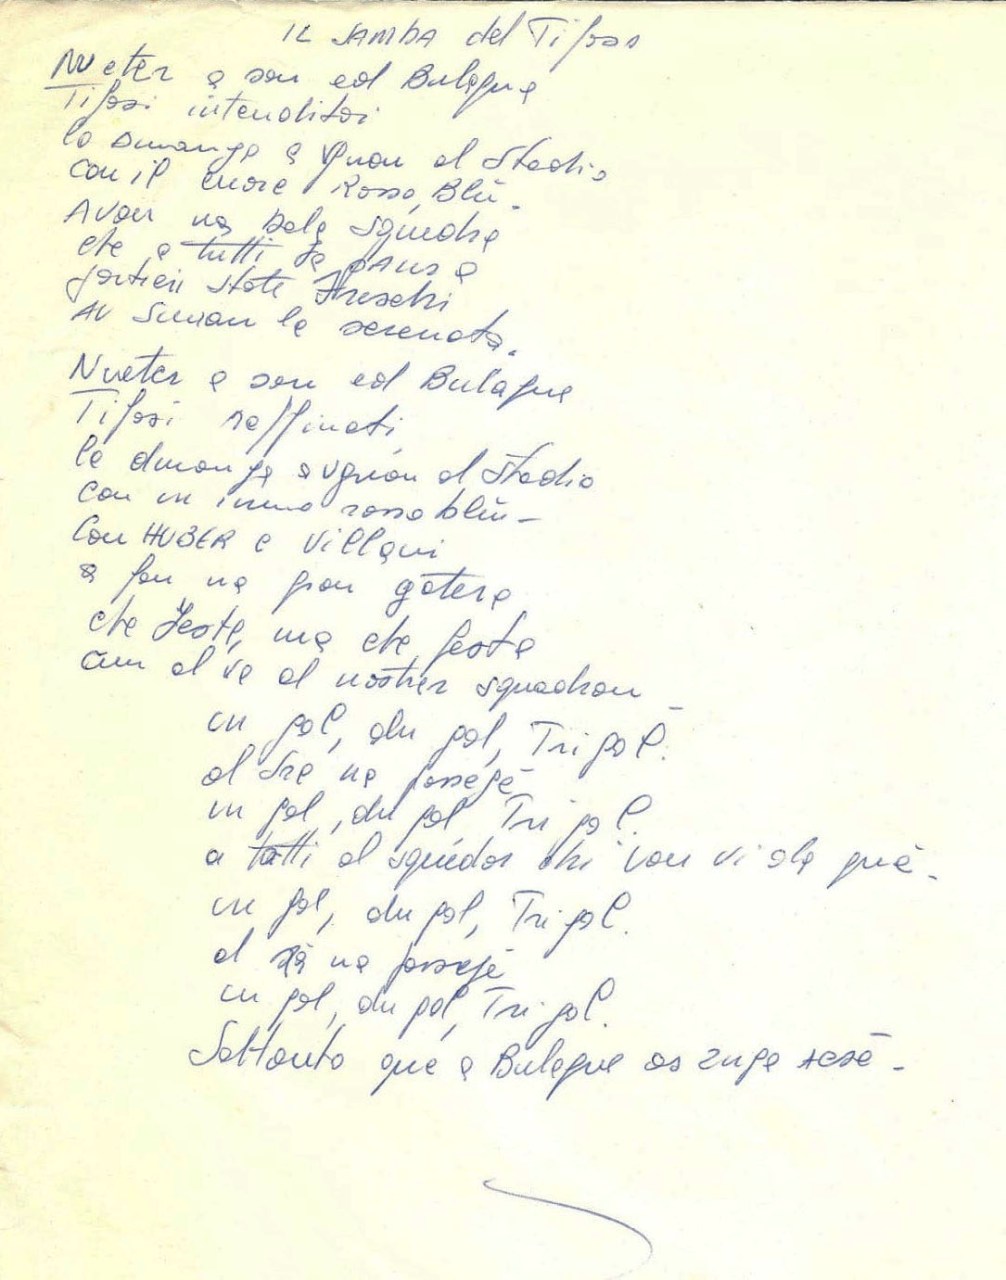 IL SAMBA del Tifoso
Nueter a son ed Bulagna
Tifosi intenditoi
la dmanga a vgnan al Stadio
con il cuore Rosso, Blù.
Avan na bela squadra
che a tutti fa paura
portieri state freschi
AV sunan la serenata.
Nueter a son ed Bulagna
Tifosi raffinati
la dmanga a vgnan al Stadio
con un inno rosso blù -
Con HUBER e Villani
a fan na gran gatera
che festa, ma che festa
cun al va al noster squadron
un gol, du gol, Tri gol.
al na
un gol, du gol Tri gol.
a tutti al squador chi van vi da quà.
un gol, du gol, Tri gol.
al sà na
un gol, du gol, Tri gol.
Soltanto que a Bulagna as zuga acsè.